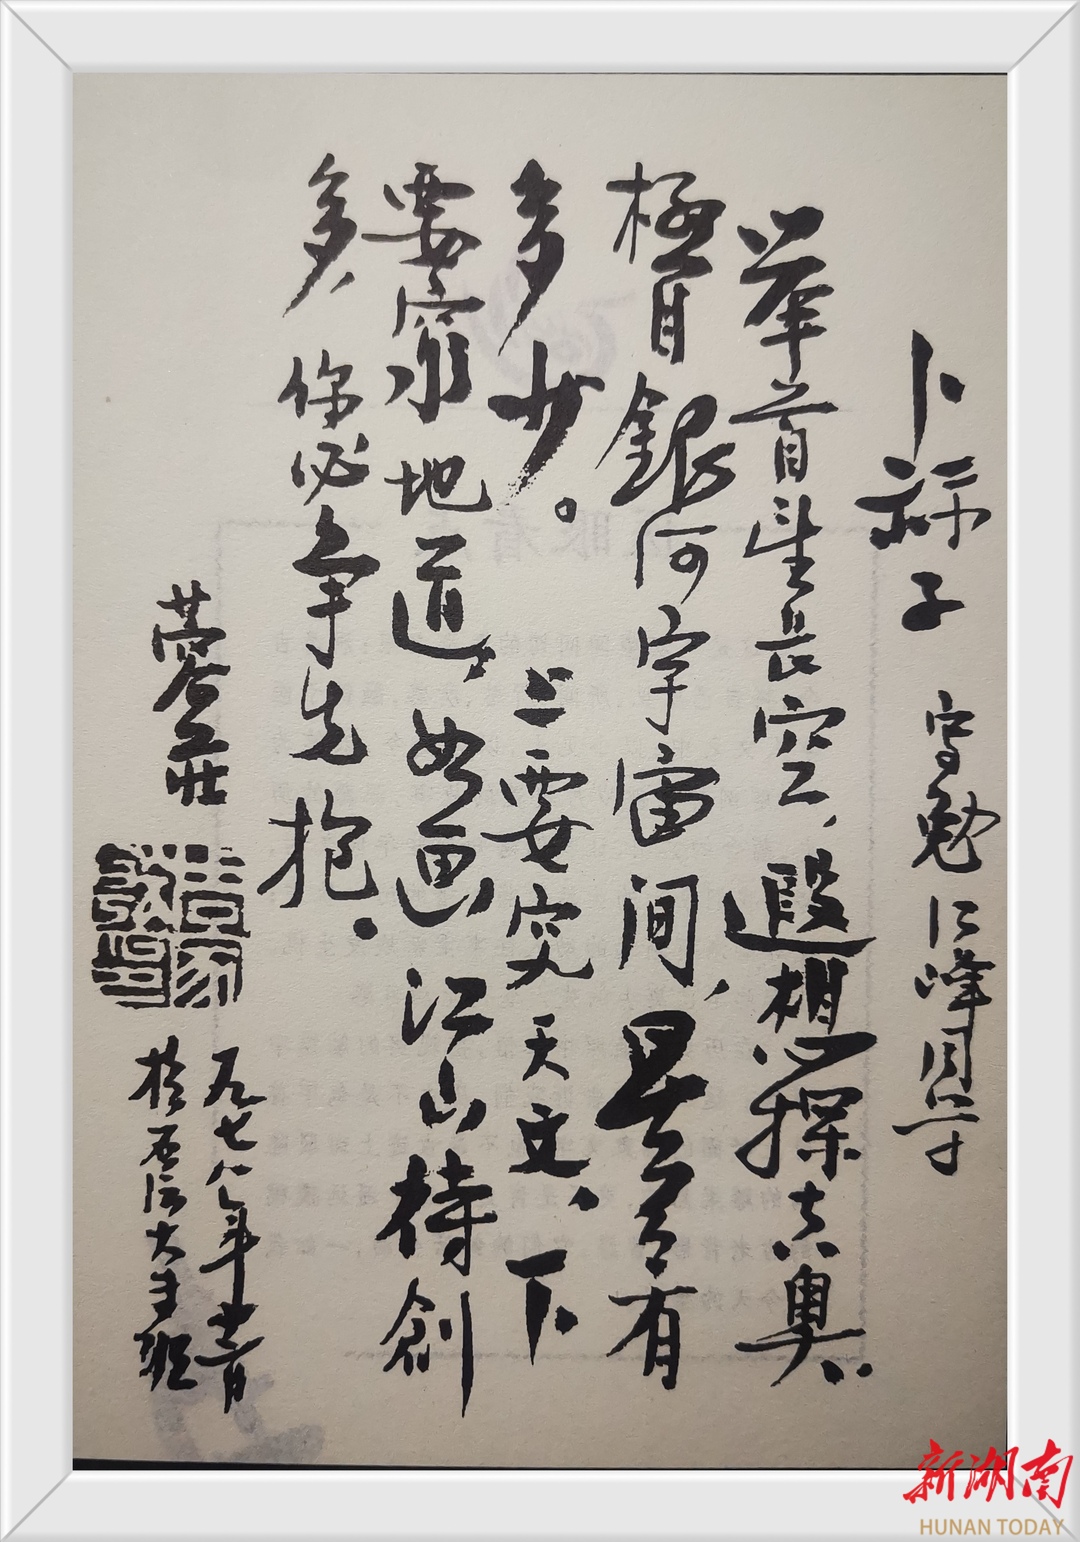 卜算子 寄勉仁峰同学
举首望长空，遐想探其奥。
极目银河宇宙间，星星有
多少。 上要究天文，下
要穷地道，如画江山待创
多，你必争先抱。
蓉庄
一九七八年十二月
于五
新湖南
HUNAN TODAY